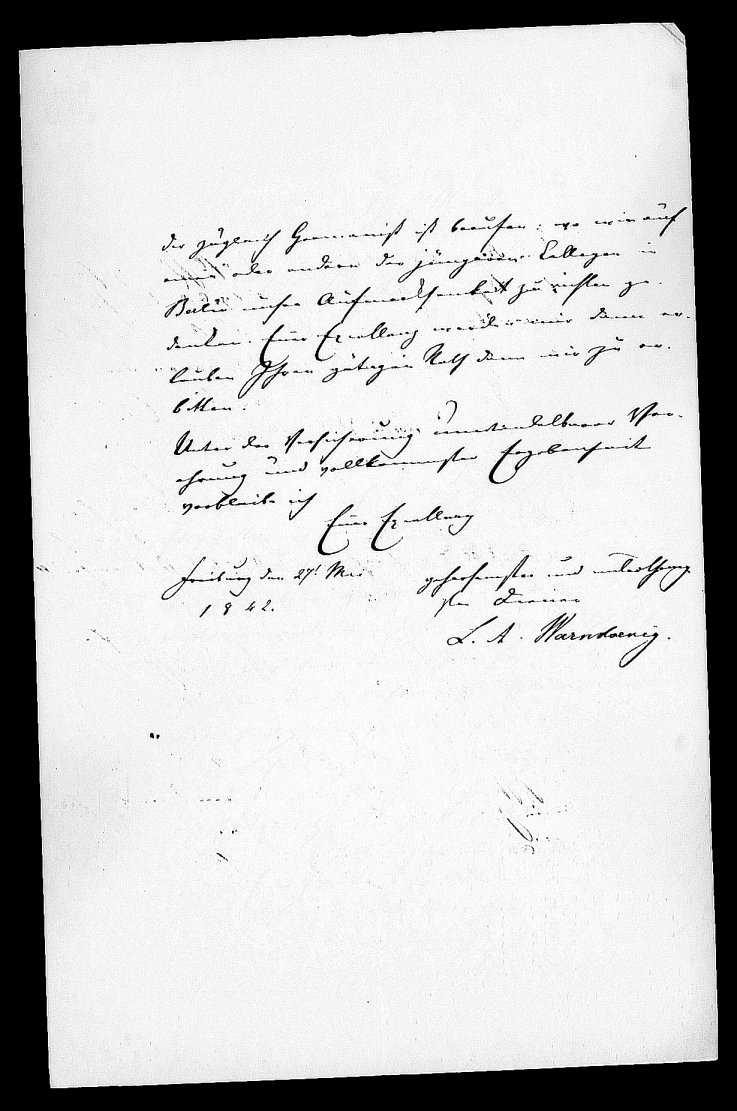 der zugleich Germanist ist berufen, wo wir auf
einen oder andern der jüngeren Collegen in
Berlin unsere Aufmerksamkeit zu richten ge-
denken. Euer Excellenz werden mir dann er-
lauben Ihren gütigen Rath dann mir zu er-
bitten.
Unter der Versicherung unwandelbarer Ver-
ehrung und vollkommenster Ergebenheit
verbleibe ich
Euer Excellenz
Freiburg den 27t Mai
1842.
gehorsamster und unterthänig-
ster Diener
L. A. Warnkoenig.